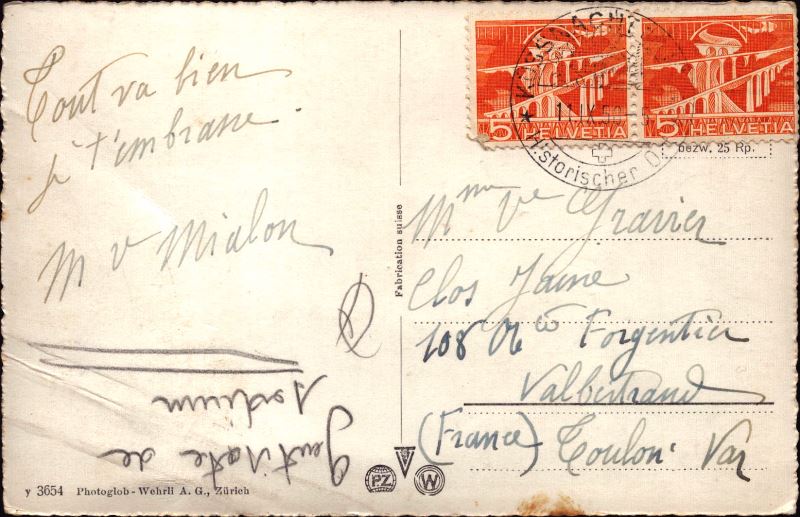 Tout va bien
je t'embrasse.
M V Mialon
Gentisate de
sodium
y 3654 Photoglob-Wehrli A. G., Zürich
Fabrication suisse
P.Z
W
5 HELVETIA
5 HELVETIA
KÜSSNACHT
11.IX.5
Historischer O
bezw. 25 Rp.
Mme Ve Gravier
Clos Jane
108 Forgentier
Valbertrand
(France) Toulon Var